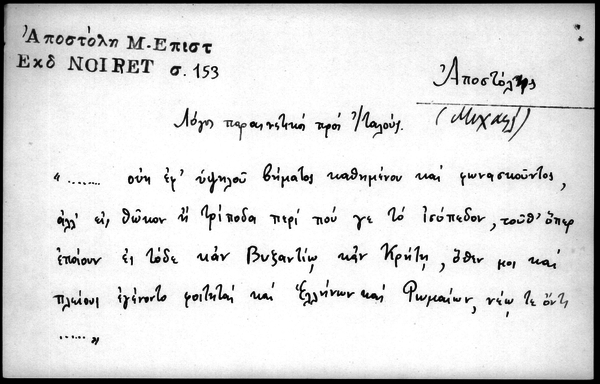 Ἀποστόλη Μ-Επιστ
Εκδ NOIRET σ. 153
Ἀποστόλης
(Μιχαήλ)
Λόγος παραινετικός πρός Ἰταλούς.
"........ οὐκ ἐφ' ὑψηλοῦ βήματος καθημένου καί φωνασκοῦντος,
ἀλλ' εἰς θῶκον ἤ τρίποδα περί πού γε τό ἰσόπεδον, τοῦθ' ὅπερ
ἐποίουν ἐς τόδε κἀν Βυζαντίῳ κἀν Κρήτῃ, ὅθεν μοι καί
πλείους ἐγένοντο φοιτηταί καί Ἑλλήνων καί Ῥωμαίων, νέῳ τε ὄντι
......"